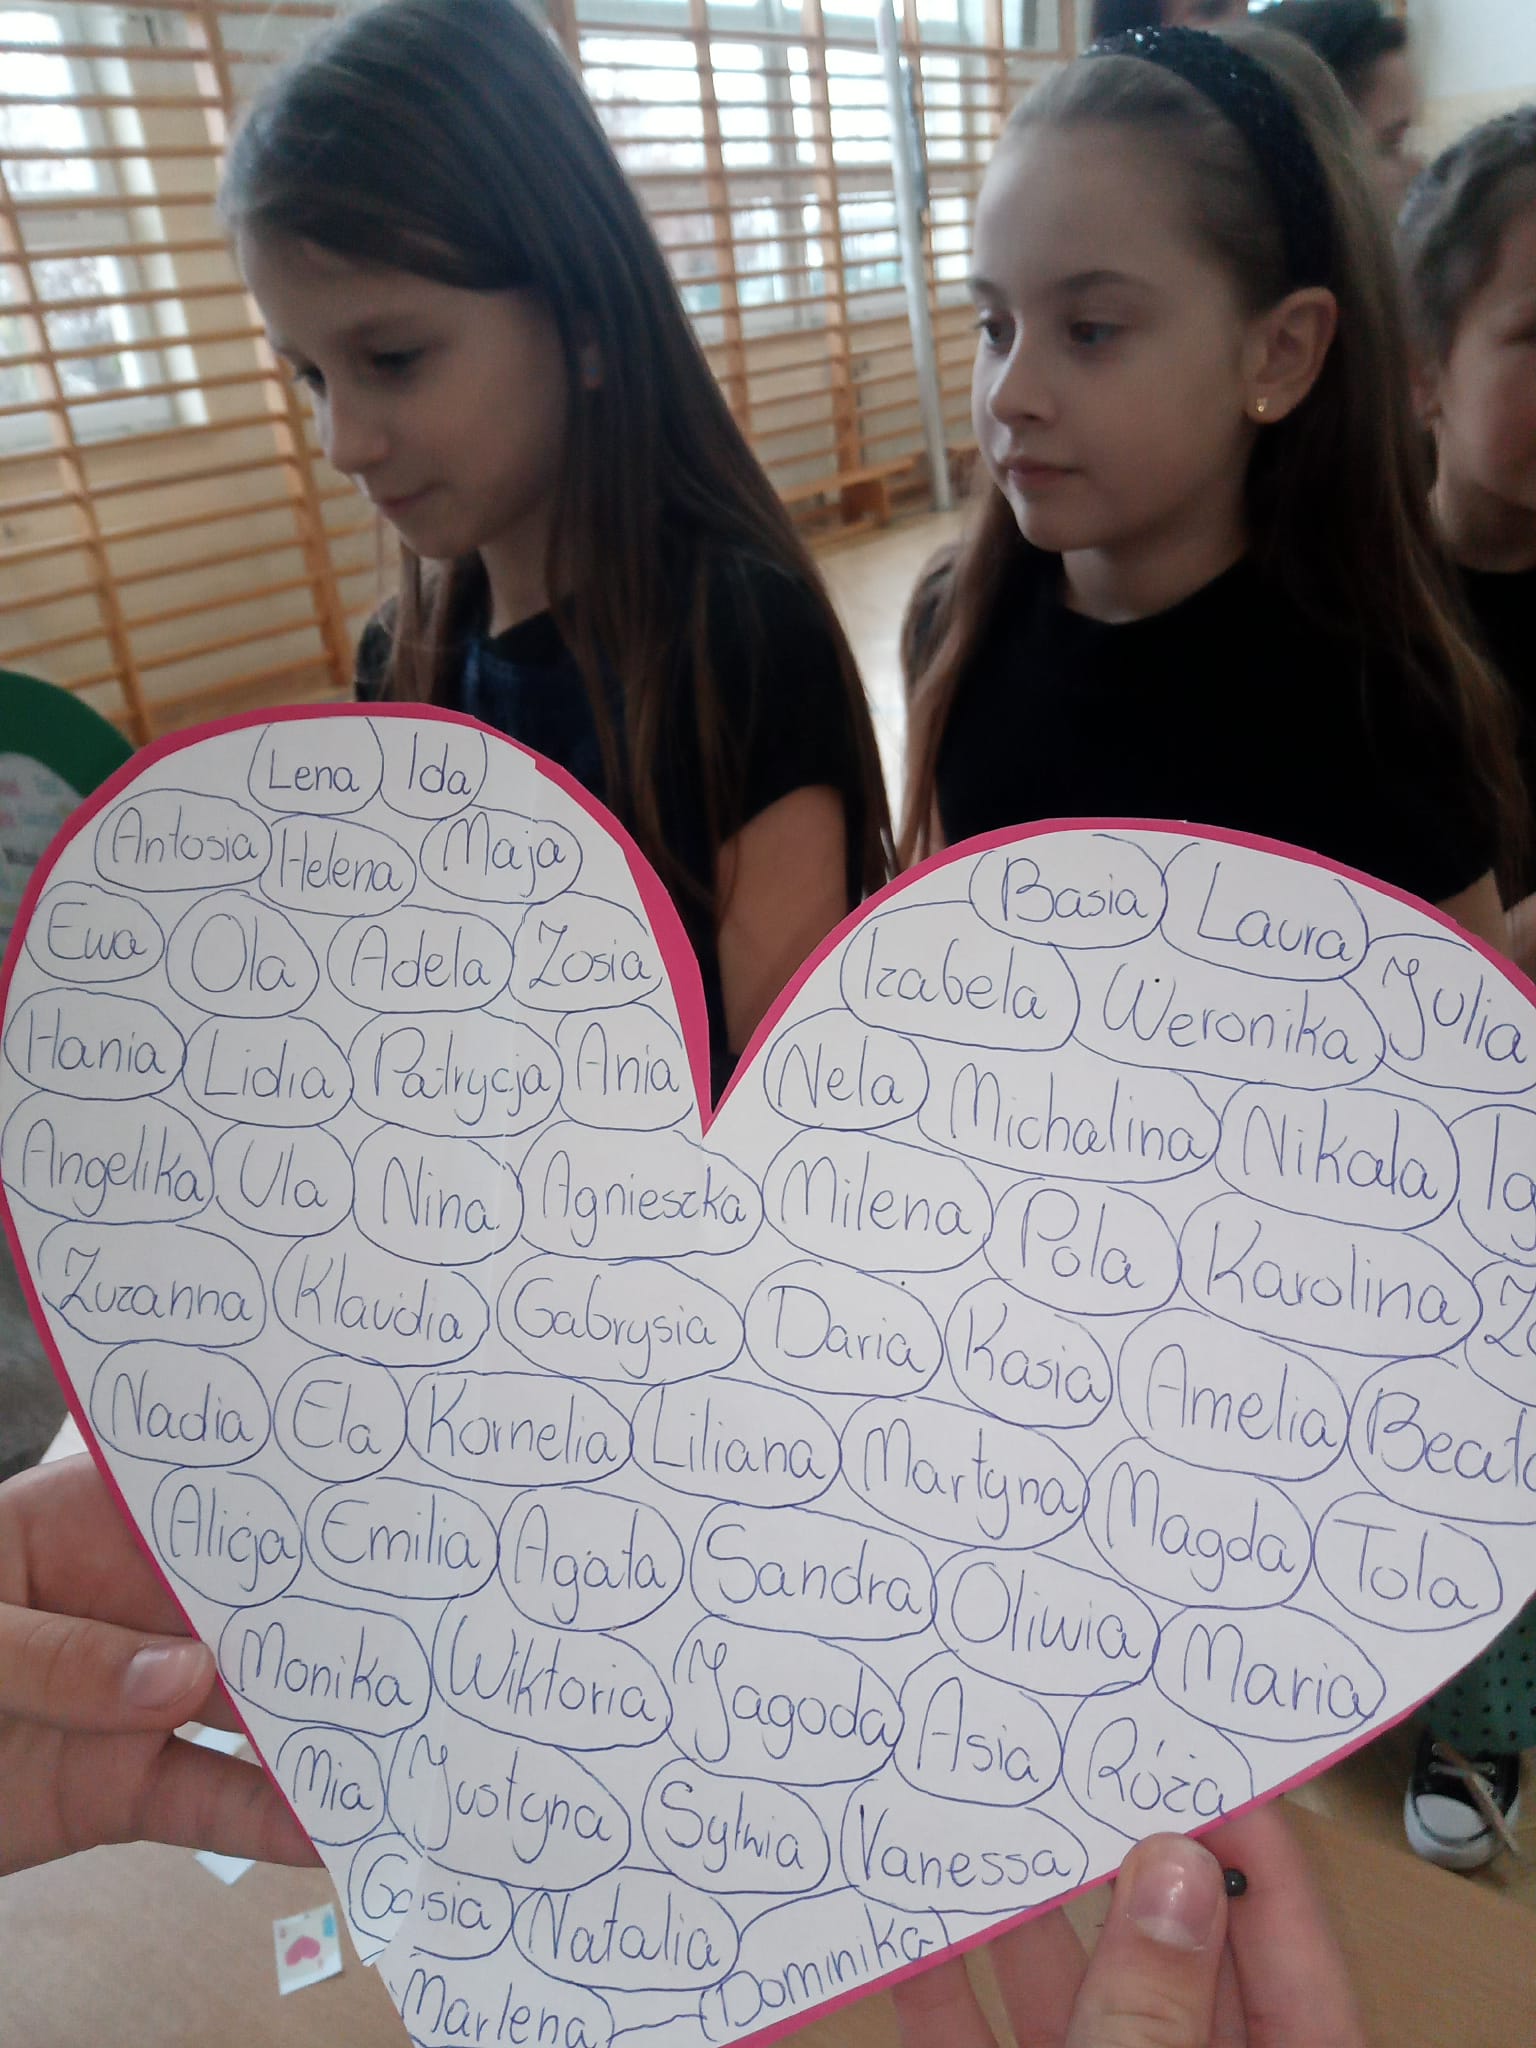 Lena Ida
Antosia Helena Maja
Basia Laura
Ewa Ola Adela Zosia
Izabela Weronika Julia
Hania Lidia Patrycja Ania
Nela Michalina Nikola
Angelika Ula Nina Agnieszka Milena Pola Karolina
Zuzanna Klaudia Gabrysia Daria Kasia Amelia
Nadia Ela Kornelia Liliana Martyna Magda Tola
Alicja Emilia Agata Sandra Oliwia Maria
Monika Wiktoria Jagoda Asia Róża
Mia Justyna Sylwia Vanessa
Gosia Natalia Dominika
Marlena